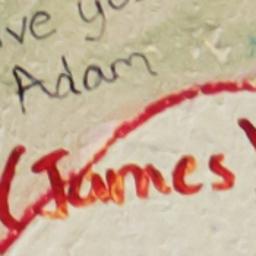 ve yo
Adam
(James)